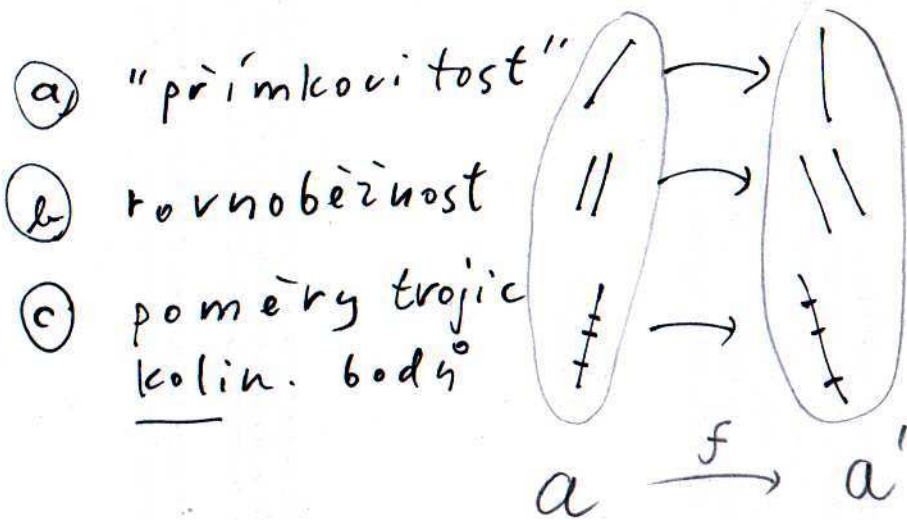 a) "přímkovitost"
b) rovnoběžnost
c) poměry trojic
kolin. bodů
a f a'